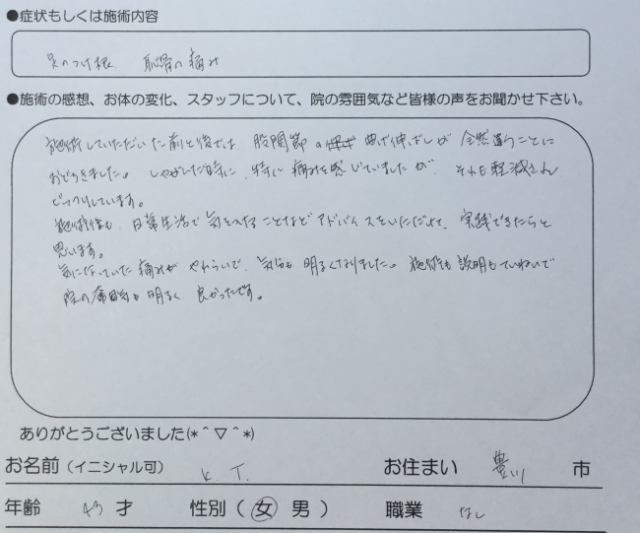 ●症状もしくは施術内容
足のつけ根 恥骨の痛み
●施術の感想、お体の変化、スタッフについて、院の雰囲気など皆様の声をお聞かせ下さい。
施術していただいた前と後では、股関節の曲げ伸ばしが全然違うことに
おどろきました。しゃがんだ時に、特に痛みを感じていましたが、それも軽減され
びっくりしています。
施術後も、日常生活で気をつけることなどアドバイスをいただけて、実践できたらと
思います。
気になっていた痛みがやわらいで、気分も明るくなりました。施術も説明もていねいで
院の雰囲気も明るく良かったです。
ありがとうございました(*＾▽＾*)
お名前（イニシャル可） K.T. お住まい 豊川 市
年齢 43 才 性別（ 女 男 ） 職業 なし